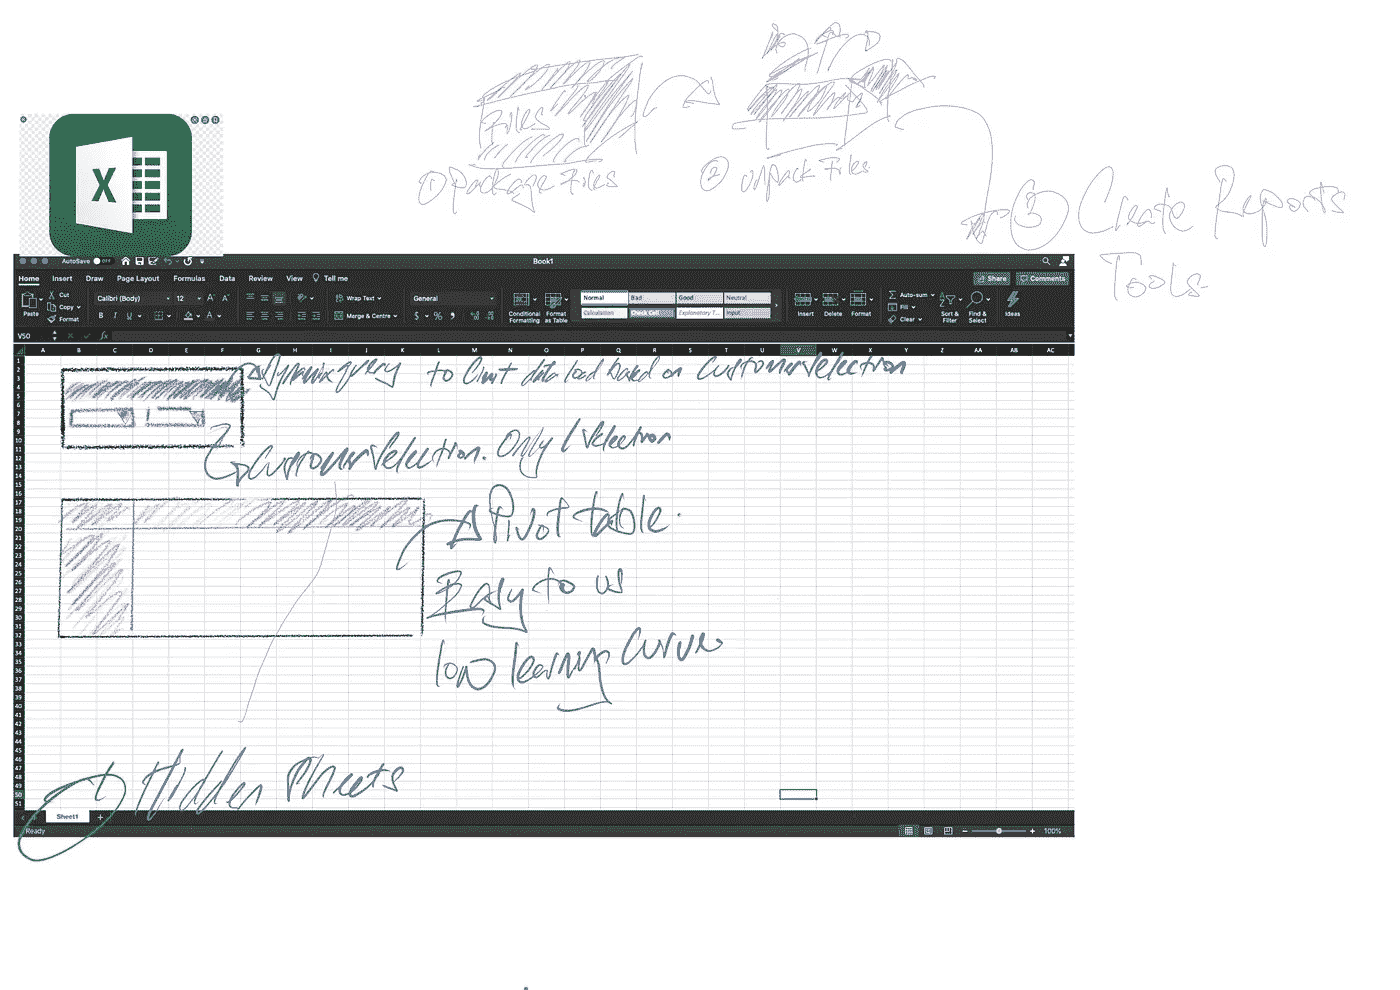 Files
① Package Files
② Unpack Files
③ Create Reports
Tools
X
AutoSave OFF
Book1
Home Insert Draw Page Layout Formulas Data Review View Tell me
Share Comments
Paste
Cut
Copy
Format
Calibri (Body) 12
B I U
Wrap Text
Merge & Centre
General
$ % ,
Conditional Formatting
Format as Table
Normal Bad Good Neutral
Calculation Check Cell Explanatory T... Input
Insert Delete Format
Auto-sum
Fill
Clear
Sort & Filter
Find & Select
Ideas
V50 fx
A B C D E F G H I J K L M N O P Q R S T U V W X Y Z AA AB AC
1
2
3
4
5
6
7
8
9
10
11
12
13
14
15
16
17
18
19
20
21
22
23
24
25
26
27
28
29
30
31
32
33
34
35
36
37
38
39
40
41
42
43
44
45
46
47
48
49
50
51
Dynamic query to limit data load based on Customer Selection
Customer Selection. Only 1 Selection
Pivot table.
Easy to us
low learning Curve
Hidden Sheets
Sheet1 +
Ready
100%